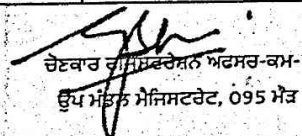 ਚੋਣਕਾਰ ਰਜਿਸਟਰੇਸ਼ਨ ਅਫਸਰ-ਕਮ-
ਉਪ ਮੰਡਲ ਮੈਜਿਸਟਰੇਟ, 095 ਮੌੜ